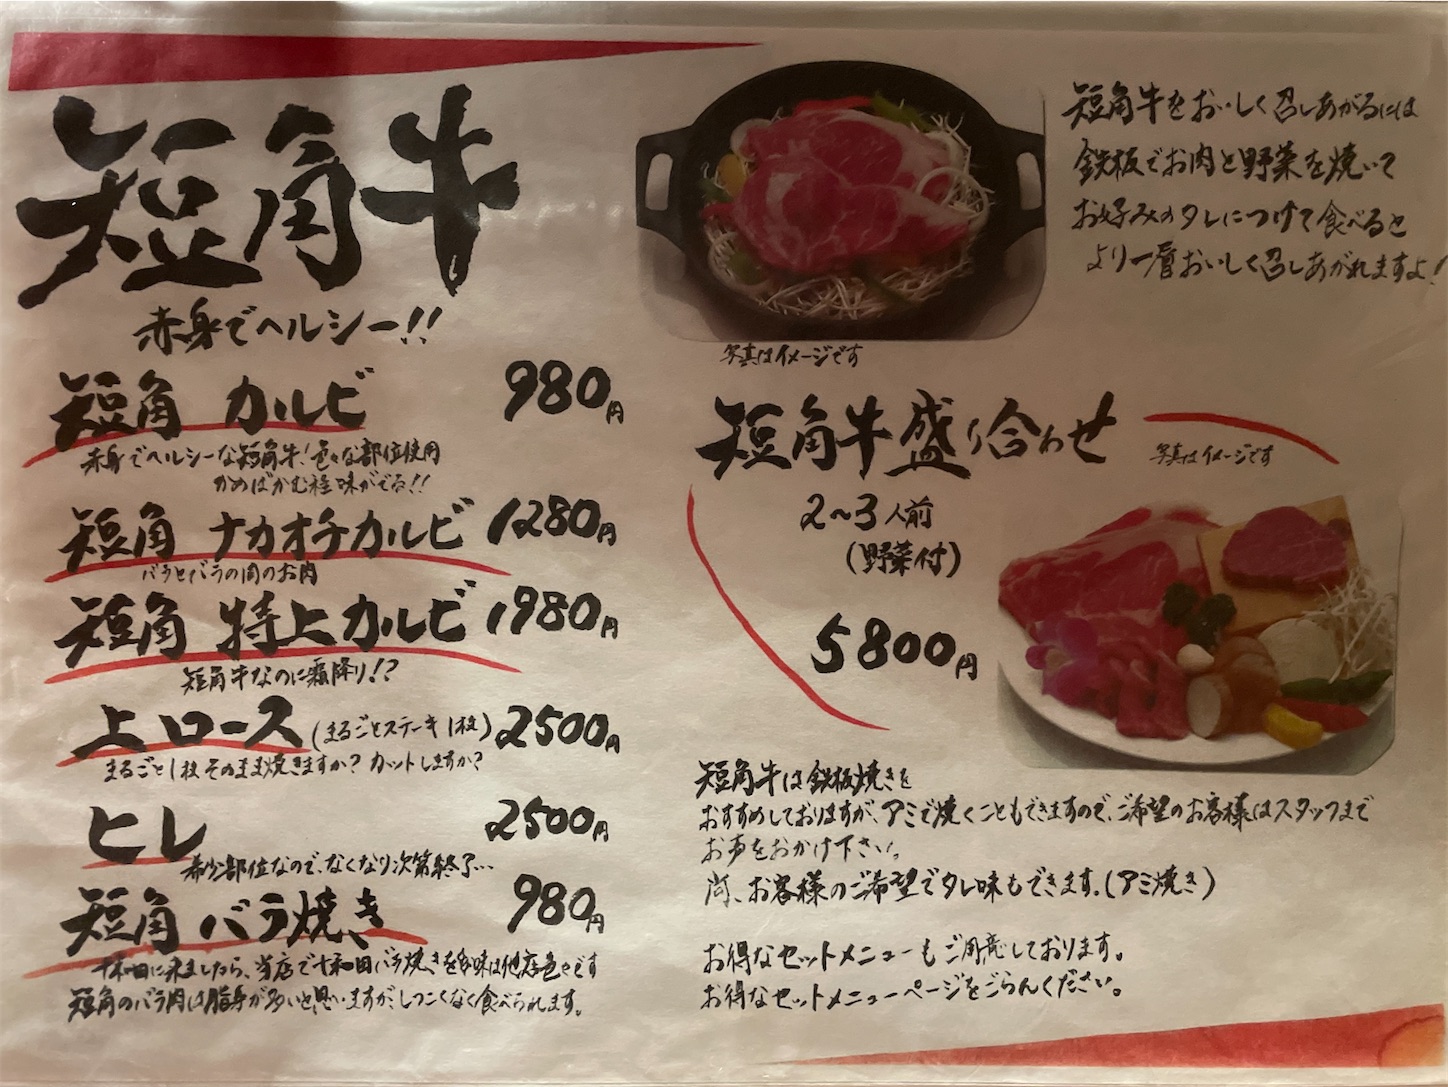 短角牛
赤身でヘルシー!!
短角 カルビ 980円
赤身でヘルシーな短角牛!色々な部位使用
かめばかむ程味がでる!!
短角 ナカオチカルビ 1280円
バラとバラの間のお肉
短角 特上カルビ 1980円
短角牛なのに霜降り!?
上ロース(まるごとステーキ1枚) 2500円
まるごと1枚そのまま焼きますか?カットしますか?
ヒレ 2500円
希少部位なので、なくなり次第終了…
短角 バラ焼き 980円
十和田に来ましたら、当店で十和田バラ焼きを!味は他店色々です
短角のバラ肉は脂身が多いと思いますが、しつこくなく食べられます。
短角牛をおいしく召しあがるには
鉄板でお肉と野菜を焼いて
お好みのタレにつけて食べると
より一層おいしく召しあがれますよ!
写真はイメージです
短角牛盛り合わせ
写真はイメージです
2〜3人前
(野菜付)
5800円
短角牛は鉄板焼きを
おすすめしておりますが、アミで焼くこともできますので、ご希望のお客様はスタッフまで
お声をおかけ下さい。
尚、お客様のご希望でタレ味もできます。(アミ焼き)
お得なセットメニューもご用意しております。
お得なセットメニューページをごらんください。